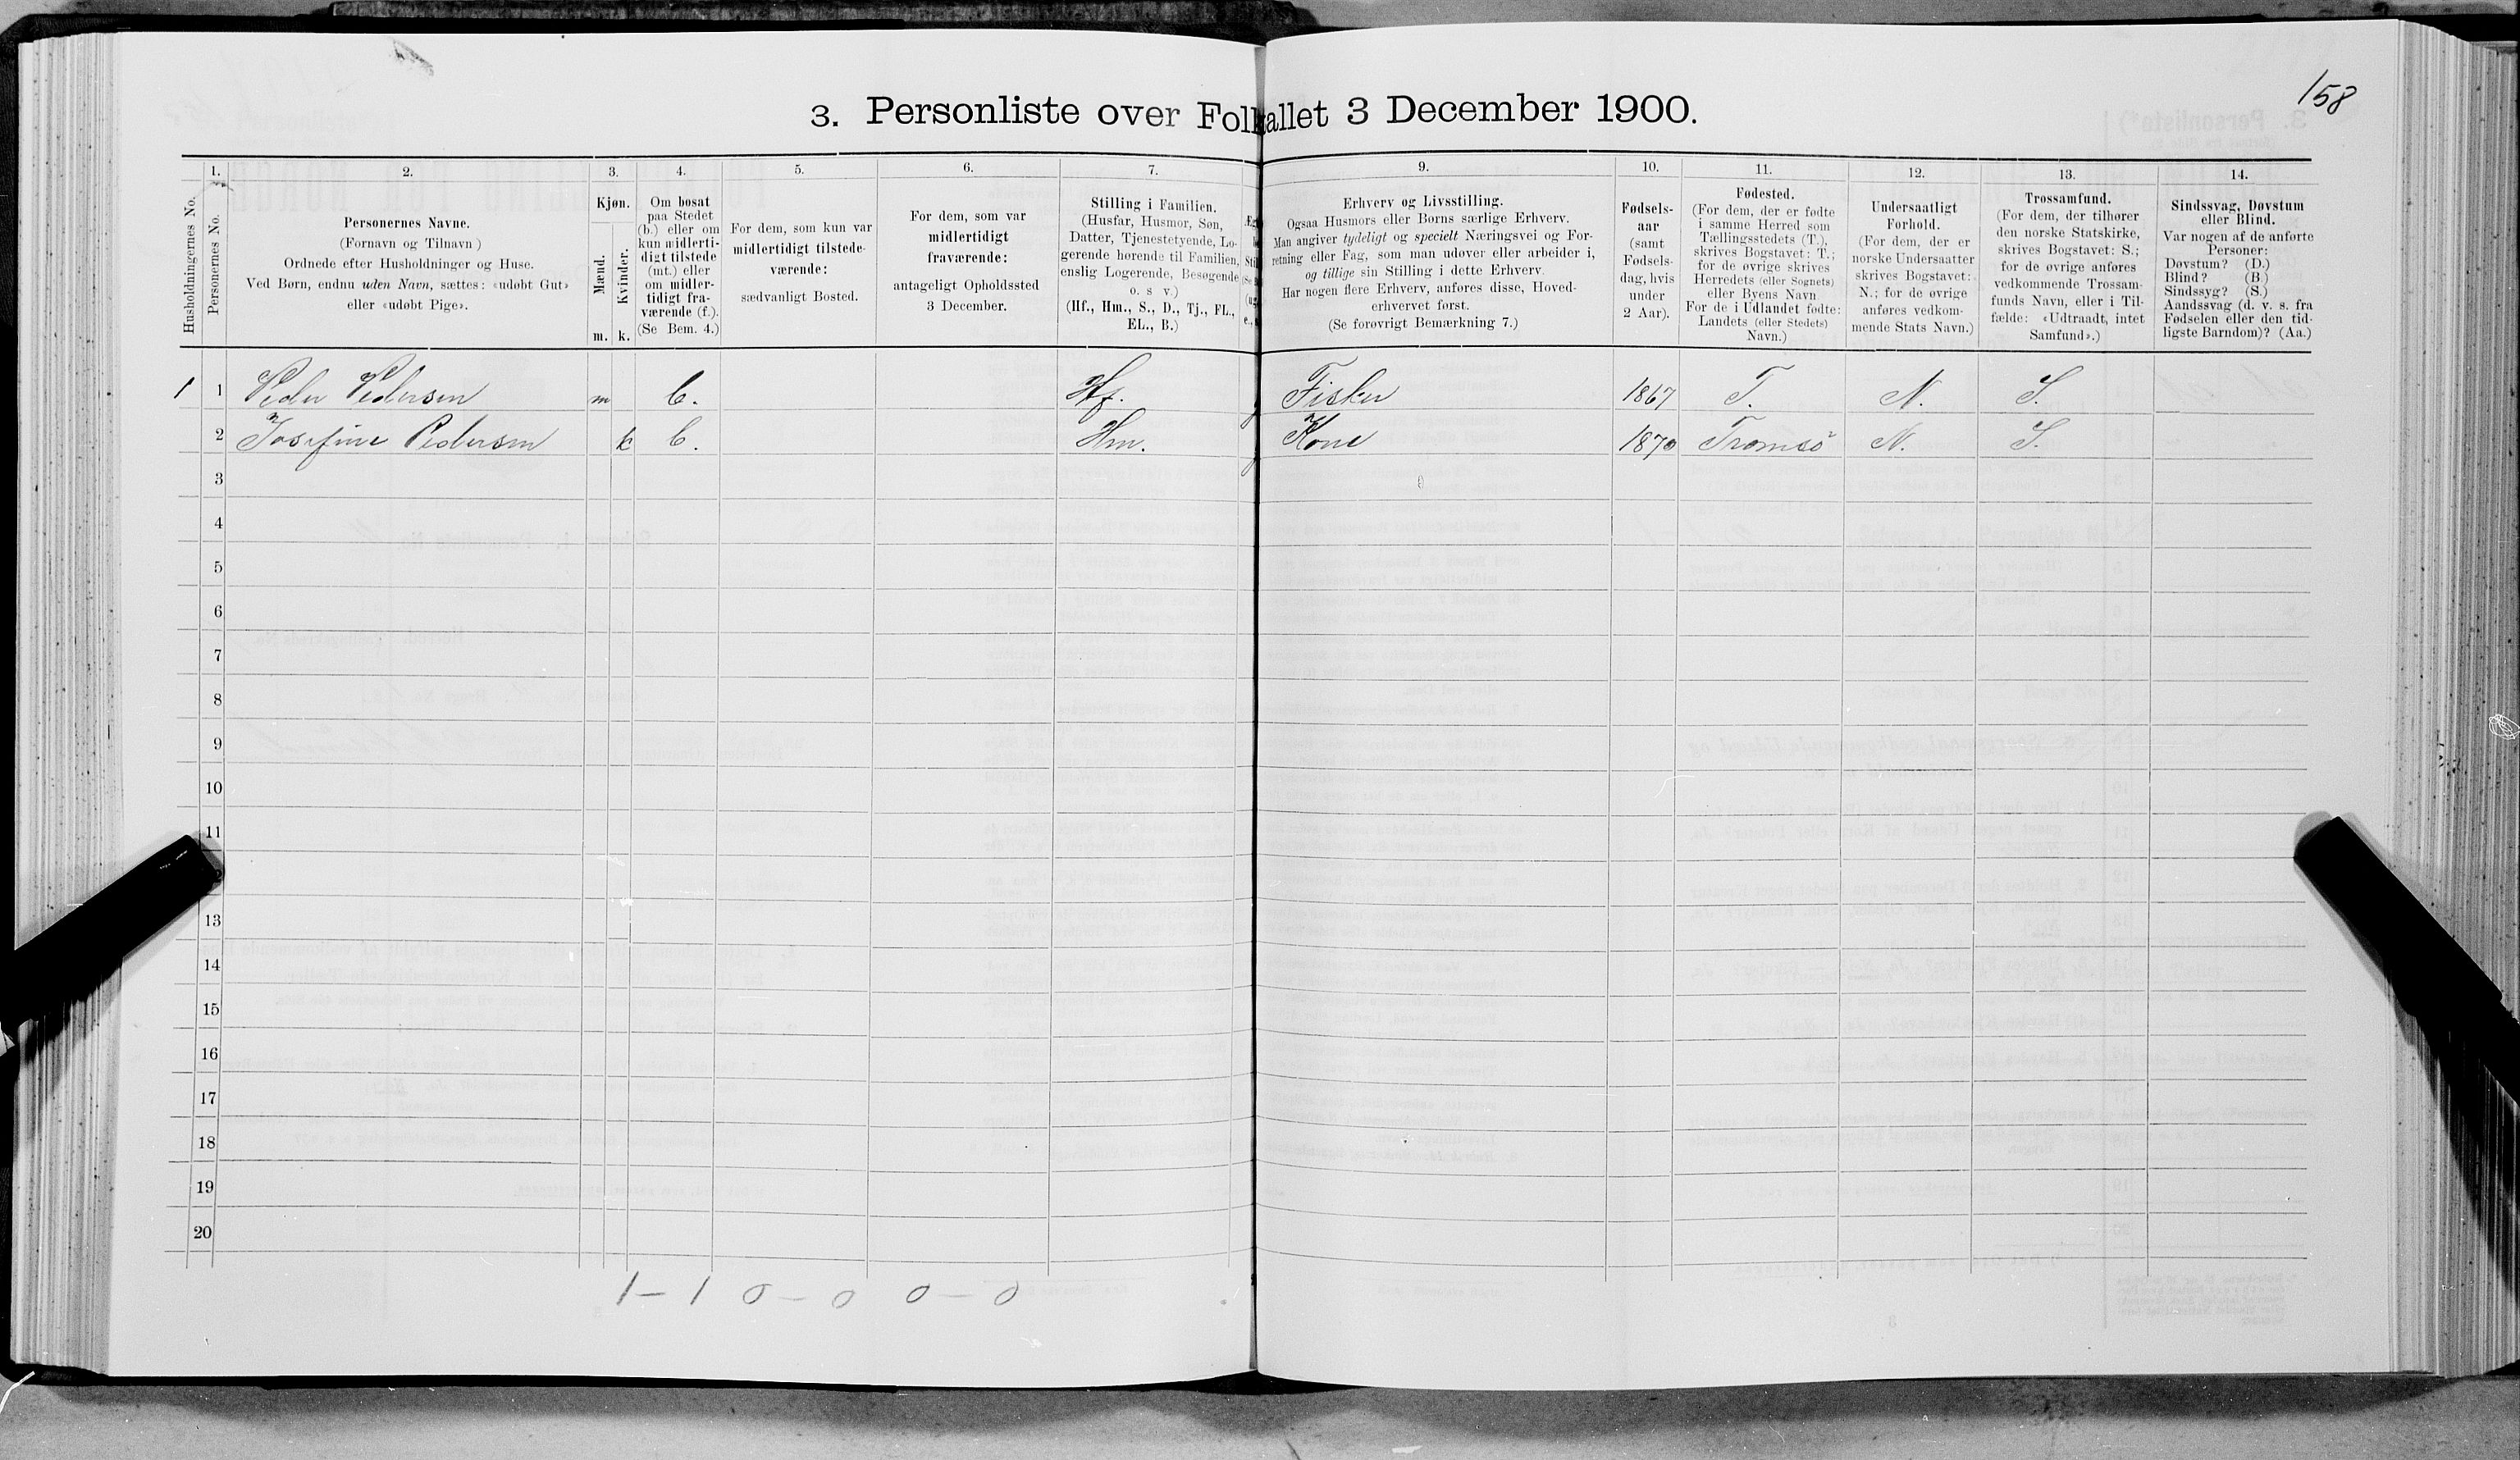 158
3. Personliste over Folketallet 3 December 1900.
1. 2. 3. 4. 5. 6. 7. 9. 10. 11. 12. 13. 14.
Husholdningernes No.
Personernes No.
Personernes Navne.
(Fornavn og Tilnavn)
Ordnede efter Husholdninger og Huse.
Ved Børn, endnu uden Navn, sættes: «udøbt Gut»
eller «udøbt Pige».
Kjøn.
Mænd.
Kvinder.
m. k.
Om bosat
paa Stedet
(b.) eller om
kun midlerti-
digt tilstede
(mt.) eller
om midler-
tidigt fra-
værende (f.).
(Se Bem. 4.)
For dem, som kun var
midlertidigt tilstede-
værende:
sædvanligt Bosted.
For dem, som var
midlertidigt
fraværende:
antageligt Opholdssted
3 December.
Stilling i Familien.
(Husfar, Husmor, Søn,
Datter, Tjenestetyende, Lo-
gerende hørende til Familien,
enslig Logerende, Besøgende
o. s v.)
(Hf., Hm., S., D., Tj., FL.,
EL., B.)
Erhverv og Livsstilling.
Ogsaa Husmors eller Børns særlige Erhverv.
Man angiver tydeligt og specielt Næringsvei og For-
retning eller Fag, som man udøver eller arbeider i,
og tillige sin Stilling i dette Erhverv.
Har nogen flere Erhverv, anføres disse, Hoved-
erhvervet først.
(Se forøvrigt Bemærkning 7.)
Fødsels-
aar
(samt
Fødsels-
dag, hvis
under
2 Aar).
Fødested.
(For dem, der er fødte
i samme Herred som
Tællingsstedets (T.),
skrives Bogstavet: T.;
for de øvrige skrives
Herredets (eller Sognets)
eller Byens Navn.
For de i Udlandet fødte:
Landets (eller Stedets)
Navn.)
Undersaatligt
Forhold.
(For dem, der er
norske Undersaatter
skrives Bogstavet:
N.; for de øvrige
anføres vedkom-
mende Stats Navn.)
Trossamfund.
(For dem, der tilhører
den norske Statskirke,
skrives Bogstavet: S.;
for de øvrige anføres
vedkommende Trossam-
funds Navn, eller i Til-
fælde: «Udtraadt, intet
Samfund».)
Sindssvag, Døvstum
eller Blind.
Var nogen af de anførte
Personer:
Døvstum? (D.)
Blind? (B.)
Sindssyg? (S.)
Aandssvag (d. v. s. fra
Fødselen eller den tid-
ligste Barndom)? (Aa.)
1 1 Peder Pedersen m b. Hf. Fisker 1867 T. N. S.
2 Josefine Pedersen k b. Hm. Kone 1870 Tromsö N. S.
3
4
5
6
7
8
9
10
11
13
14
15
16
17
18
19
20
1 – 1 0 – 0 0 – 0